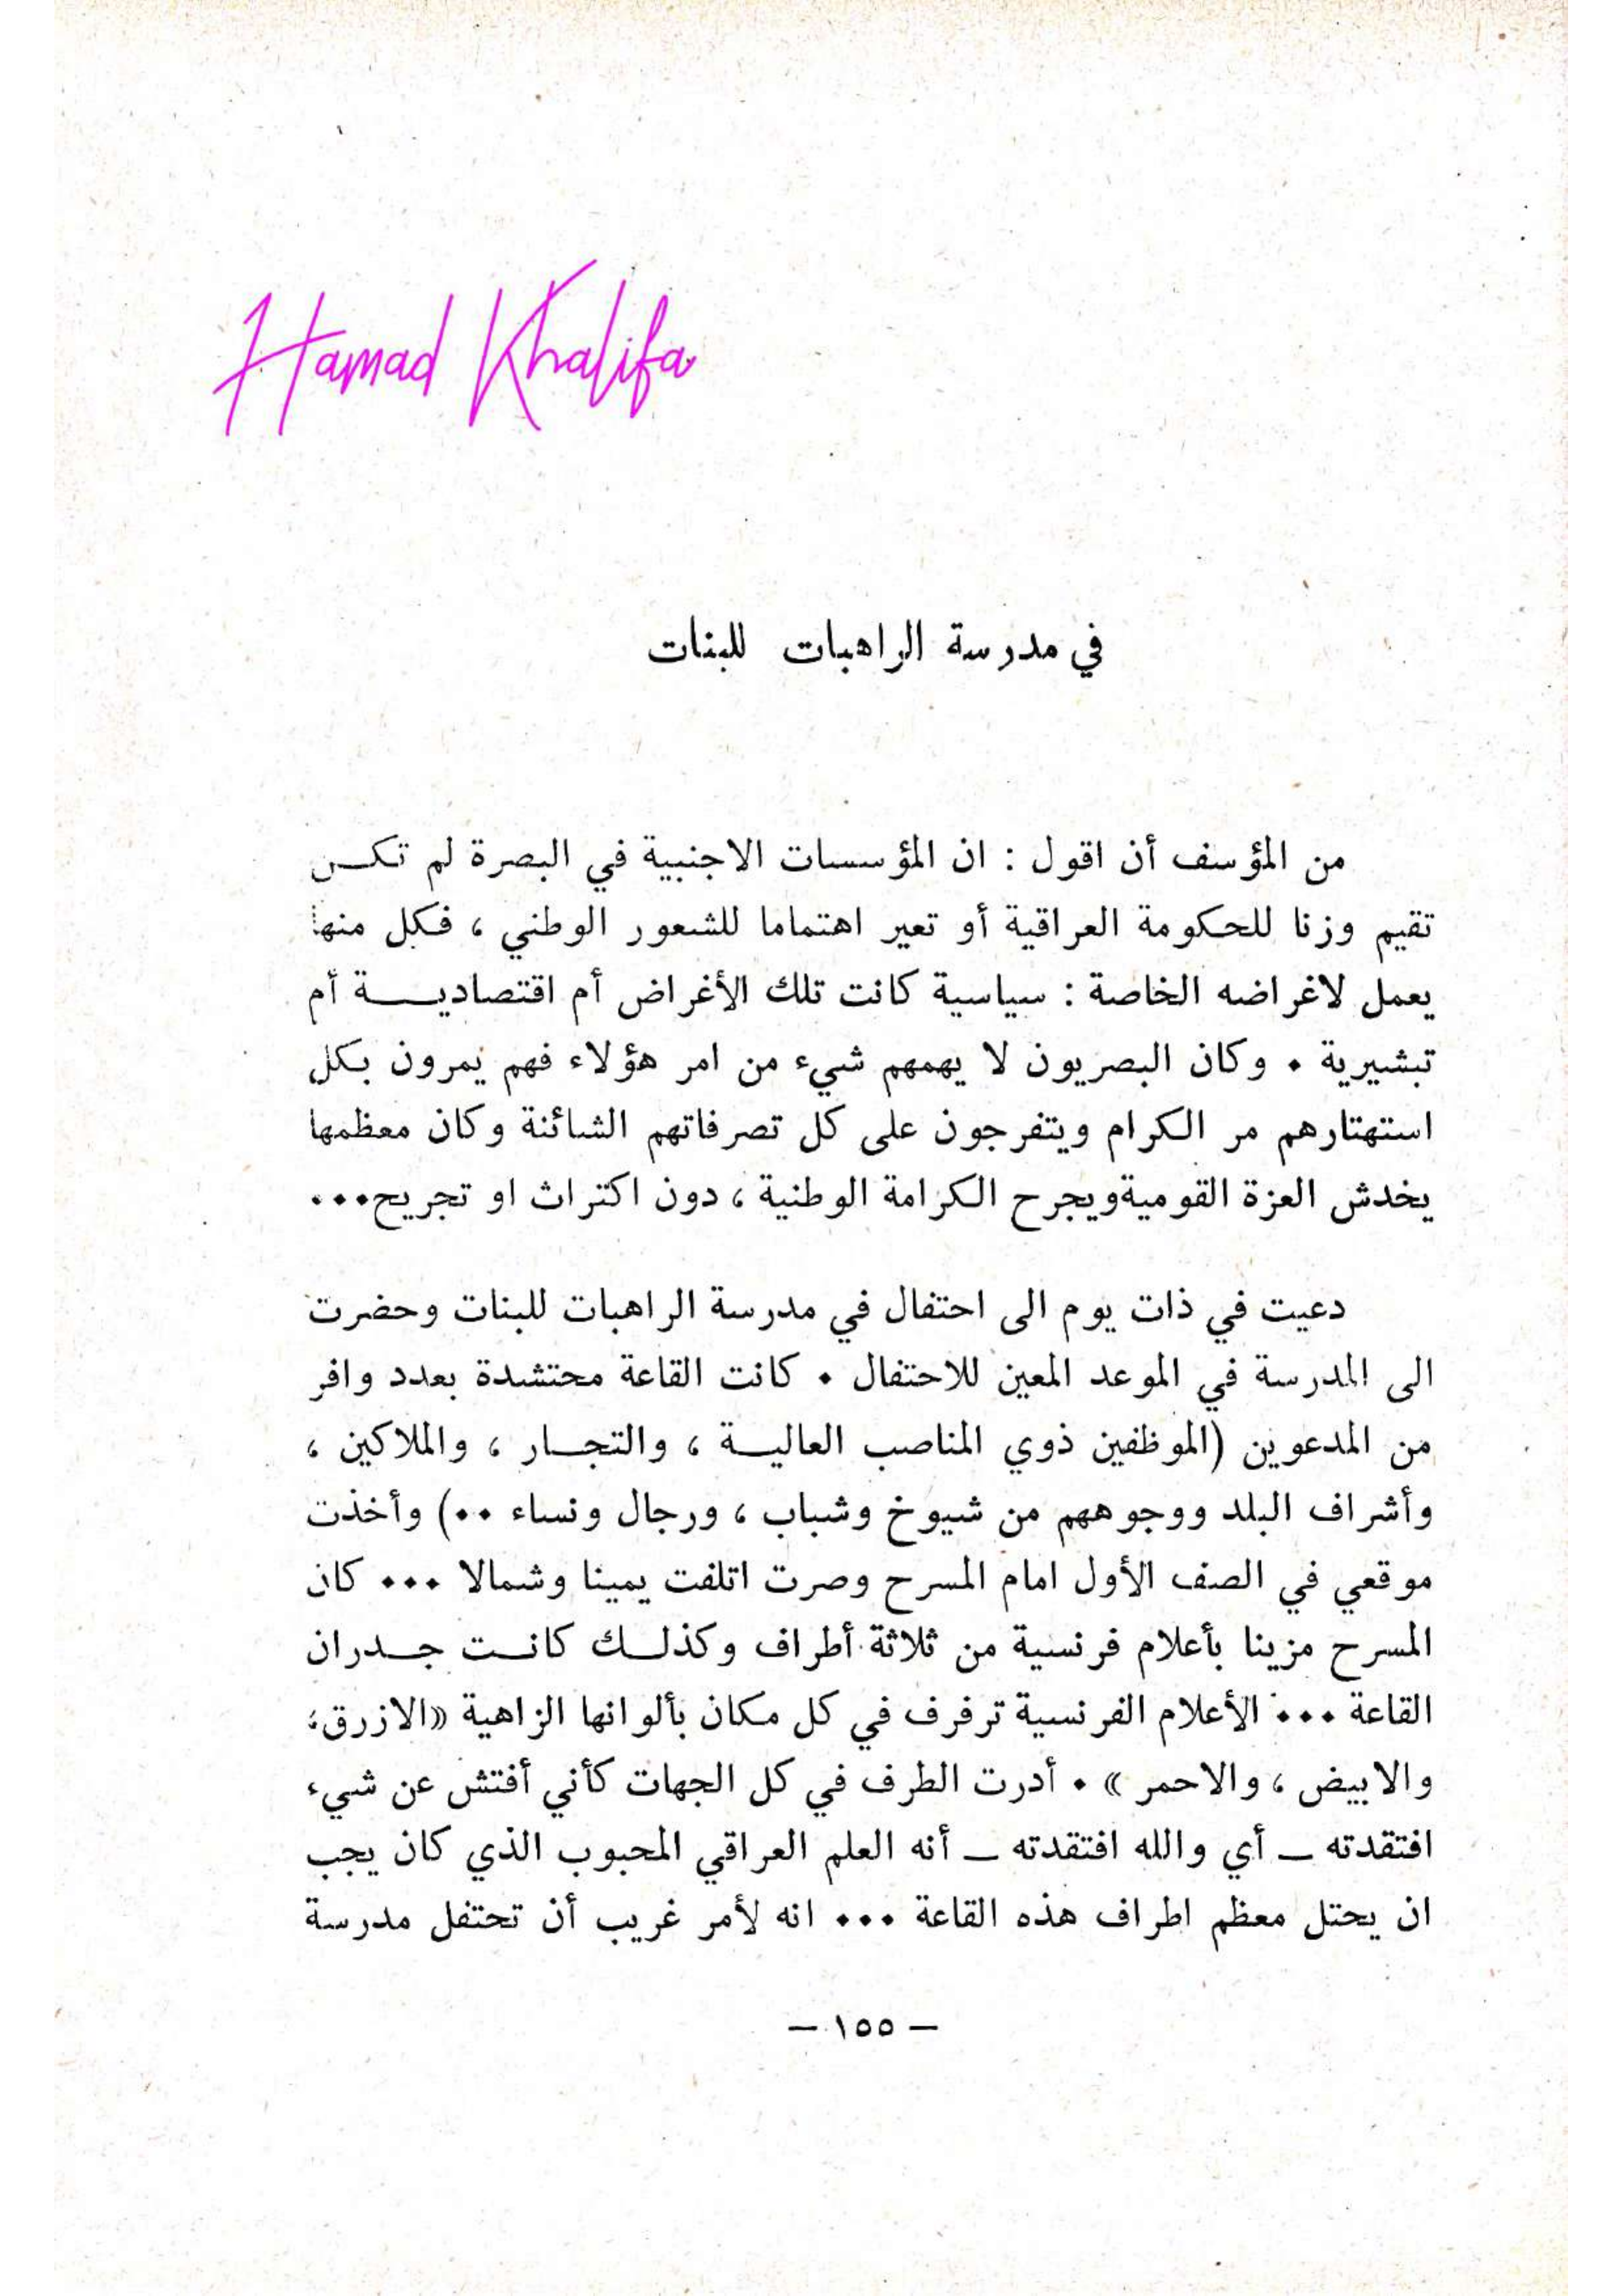 Hamad Khalifa
في مدرسة الراهبات للبنات
من المؤسف أن اقول : ان المؤسسات الاجنبية في البصرة لم تكـــن
تقيم وزنا للحكومة العراقية أو تعير اهتماما للشعور الوطني ، فكل منها
يعمل لاغراضه الخاصة : سياسية كانت تلك الأغراض أم اقتصاديـــــة أم
تبشيرية . وكان البصريون لا يهمهم شيء من امر هؤلاء فهم يمرون بكل
استهتارهم مر الكرام ويتفرجون على كل تصرفاتهم الشائنة وكان معظمها
يخدش العزة القوميةويجرح الكرامة الوطنية ، دون اكتراث او تجريح...
دعيت في ذات يوم الى احتفال في مدرسة الراهبات للبنات وحضرت
الى المدرسة في الموعد المعين للاحتفال . كانت القاعة محتشدة بعدد وافر
من المدعوين (الموظفين ذوي المناصب العاليـــة ، والتجـــار ، والملاكين ،
وأشراف البلد ووجوههم من شيوخ وشباب ، ورجال ونساء ..) وأخذت
موقعي في الصف الأول امام المسرح وصرت اتلفت يمينا وشمالا ... كان
المسرح مزينا بأعلام فرنسية من ثلاثة أطراف وكذلـــك كانـــت جـــدران
القاعة ... الأعلام الفرنسية ترفرف في كل مكان بألوانها الزاهية «الازرق،
والابيض ، والاحمر » . أدرت الطرف في كل الجهات كأني أفتش عن شيء
افتقدته ــ أي والله افتقدته ــ أنه العلم العراقي المحبوب الذي كان يجب
ان يحتل معظم اطراف هذه القاعة ... انه لأمر غريب أن تحتفل مدرسة
— ١٥٥ —